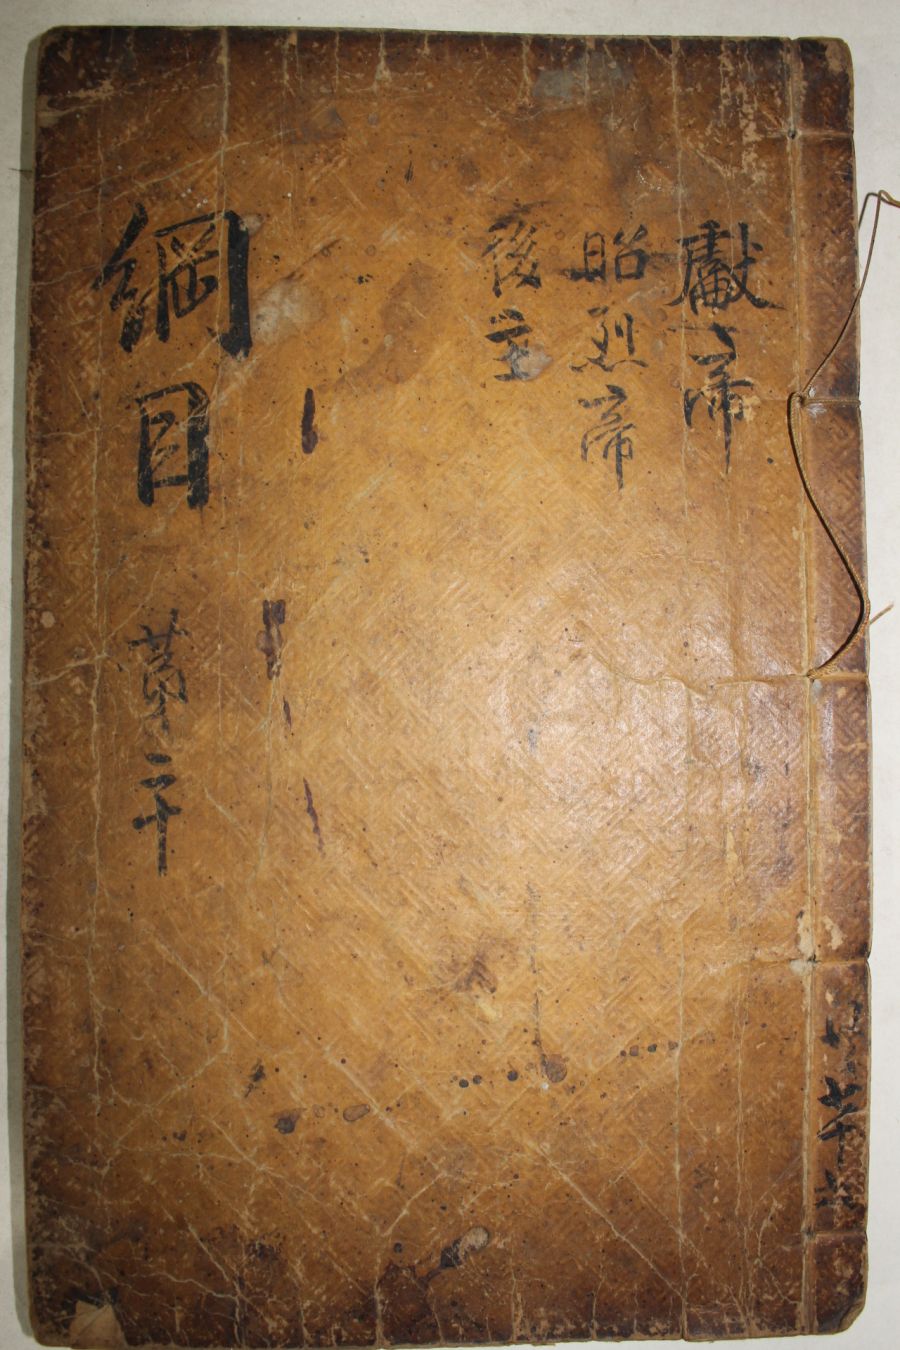 獻帝
昭烈帝
後主
綱目
第二十